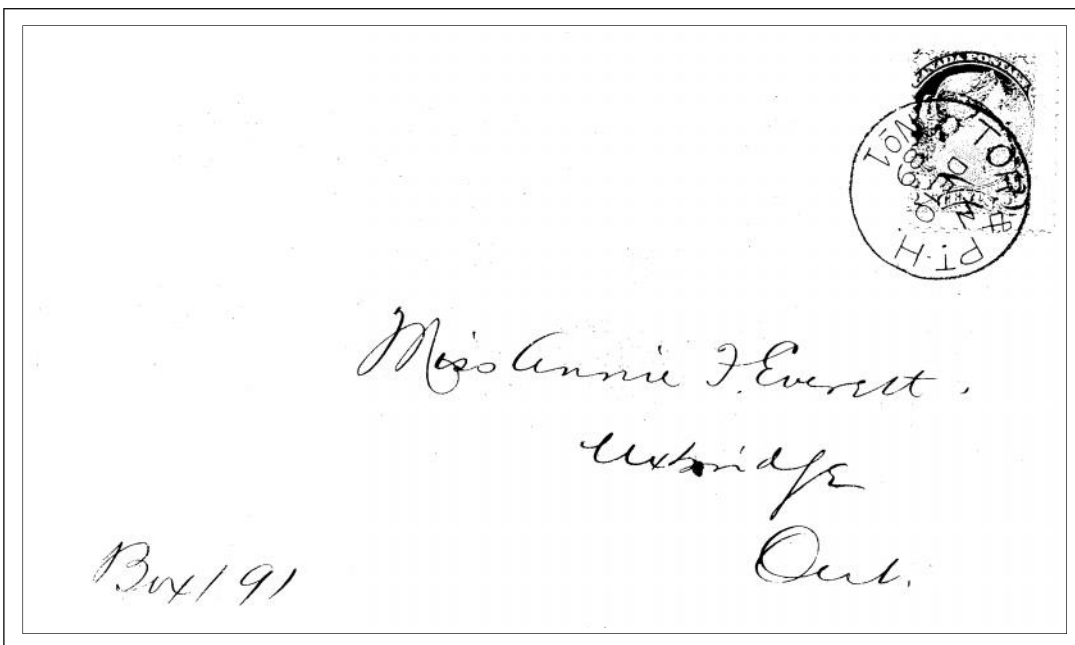 CANADA POSTAGE
TOR. & PT. H. No1
DE
Miss Annie F. Everett.
Uxbridge
Ont.
Box 191